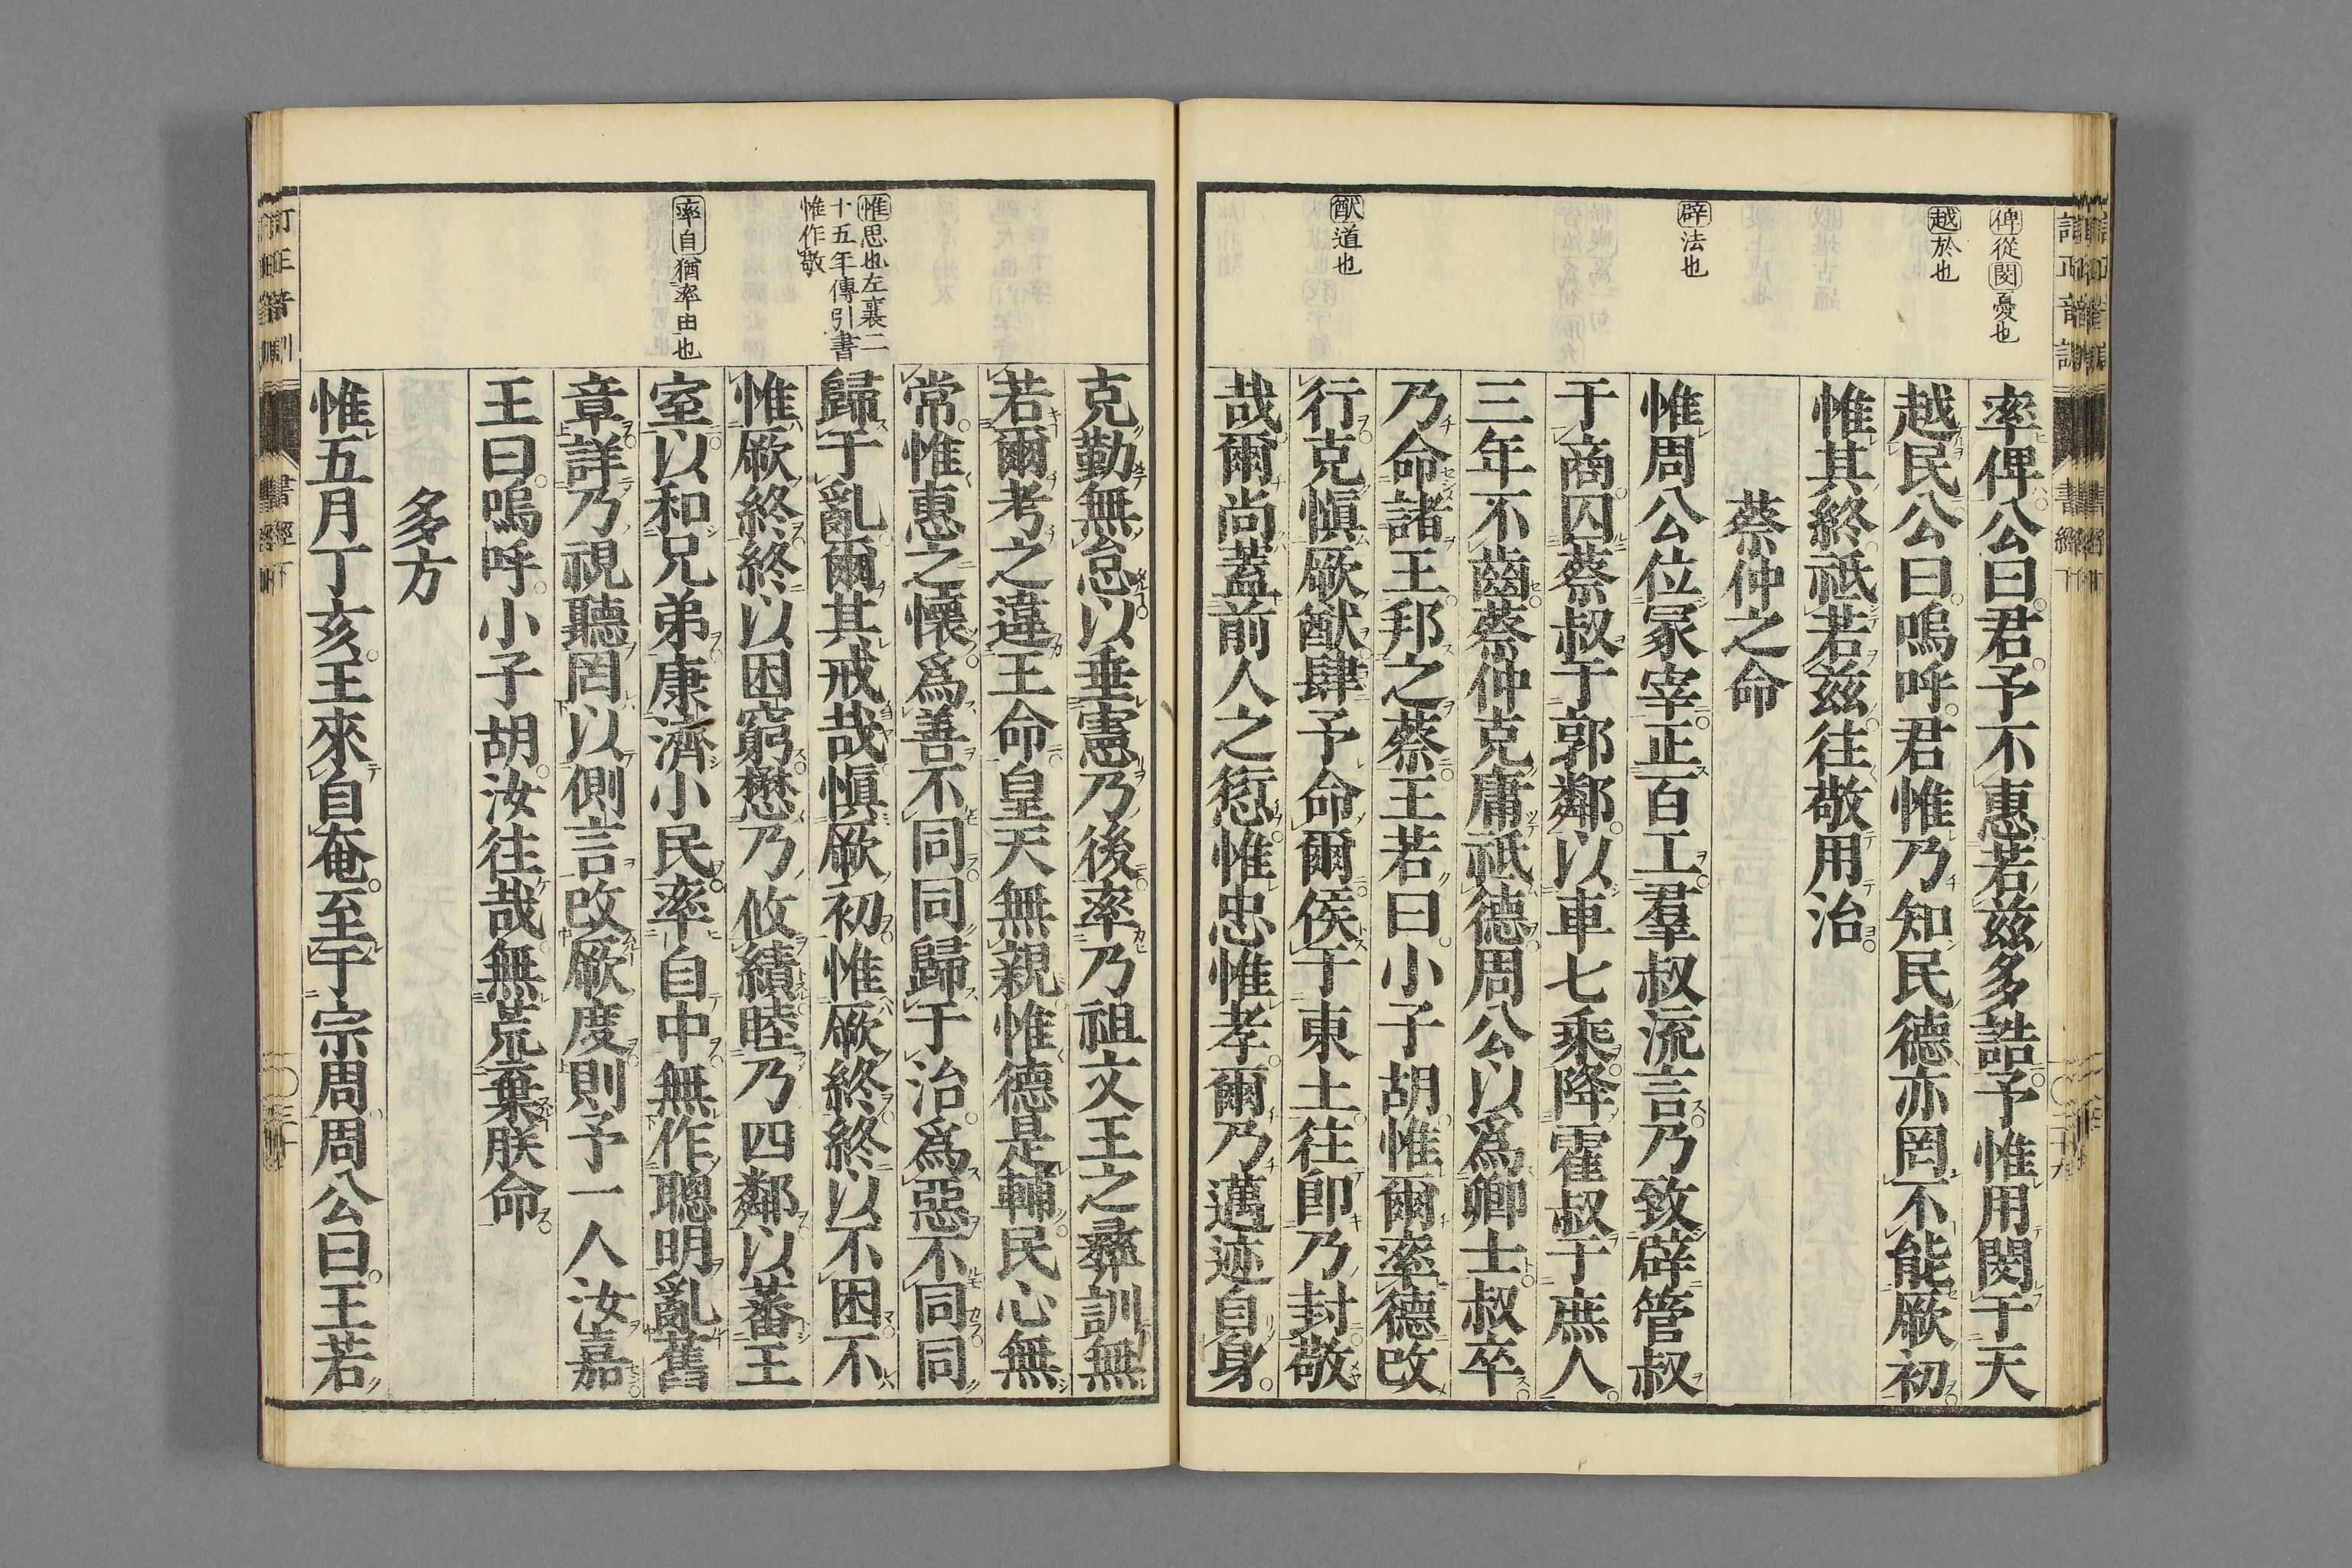 俾從閔憂也
越於也
辟法也
猷道也
率俾公曰君予不惠若茲多誥予惟用閔于天
越民公曰嗚呼君惟乃知民德亦罔不能厥初
惟其終祗若茲往敬用治
蔡仲之命
惟周公位冢宰正百工羣叔流言乃致辟管叔
于商囚蔡叔于郭鄰以車七乘降霍叔于庶人
三年不齒蔡仲克庸祗德周公以爲卿士叔卒
乃命諸王邦之蔡王若曰小子胡惟爾率德改
行克愼厥猷肆予命爾侯于東土往卽乃封敬
哉爾尚蓋前人之愆惟忠惟孝爾乃邁迹自身
惟思也左襄二
十五年傳引書
惟作敬
率自猶率由也
克勤無怠以垂憲乃後率乃祖文王之彝訓無
若爾考之違王命皇天無親惟德是輔民心無
常惟惠之懷爲善不同同歸于治爲惡不同同
歸于亂爾其戒哉愼厥初惟厥終終以不困不
惟厥終終以困窮懋乃攸績睦乃四鄰以蕃王
室以和兄弟康濟小民率自中無作聰明亂舊
章詳乃視聽罔以側言改厥度則予一人汝嘉
王曰嗚呼小子胡汝往哉無荒棄朕命
多方
惟五月丁亥王來自奄至于宗周周公曰王若